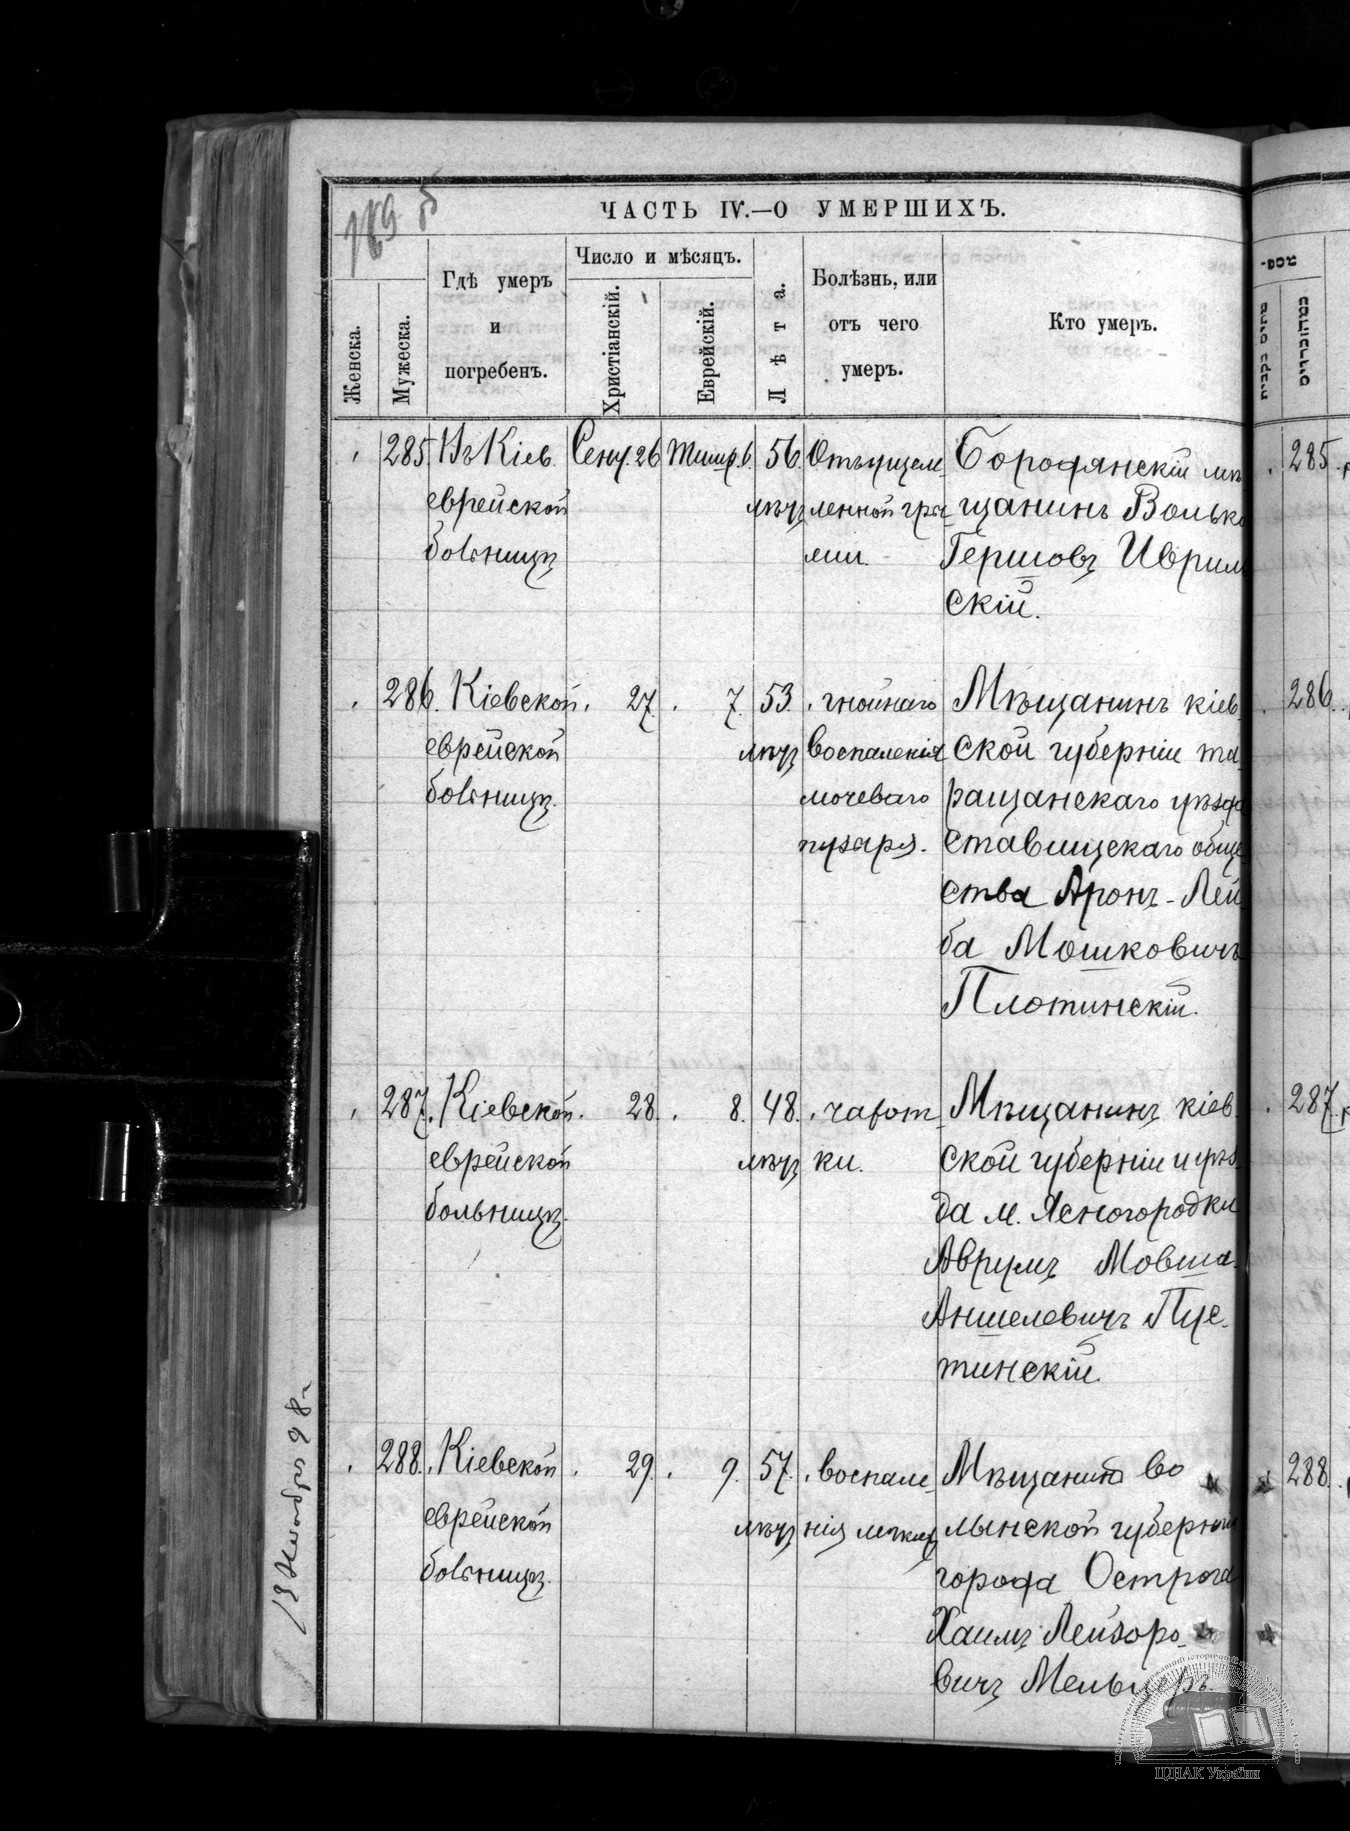 189 б
ЧАСТЬ IV.—О УМЕРШИХЪ.
Женска.
Мужеска.
Гдѣ умеръ
и
погребенъ.
Число и мѣсяцъ.
Христіанскій.
Еврейскій.
Лѣта.
Болѣзнь, или
отъ чего
умеръ.
Кто умеръ.
285. Въ Кіев.
еврейской
больницѣ
Сент. 26
Тишр. 6.
56.
лѣтъ
Отъ ущем-
ленной гры-
жи.
Бородянскій мѣ-
щанинъ Волько
Гершовъ
скій.
285.
286. Кіевской
еврейской
больницѣ.
27.
7.
53.
лѣтъ
гнойнаго
воспаленія
мочеваго
пузыря.
Мѣщанинъ кіев-
ской губерніи та-
ращанскаго уѣзда
ставищскаго обще-
ства Аронъ-Лей-
ба Мошковичъ
Плотинскій.
286.
287. Кіевской
еврейской
больницѣ.
28.
8.
48.
лѣтъ
чахот-
ки.
Мѣщанинъ кіев-
ской губерніи и уѣз-
да м. Ясногородки
Аврумъ Мовша-
Аншелевичъ Пус-
тинскій.
287.
288. Кіевской
еврейской
больницѣ.
29.
9.
57.
лѣтъ
воспале-
нія легкихъ
Мѣщанинъ во-
лынской губерніи
города Острога
Хаимъ Лейзоро-
вичъ Мельцеръ.
288.
ЦДІАК України